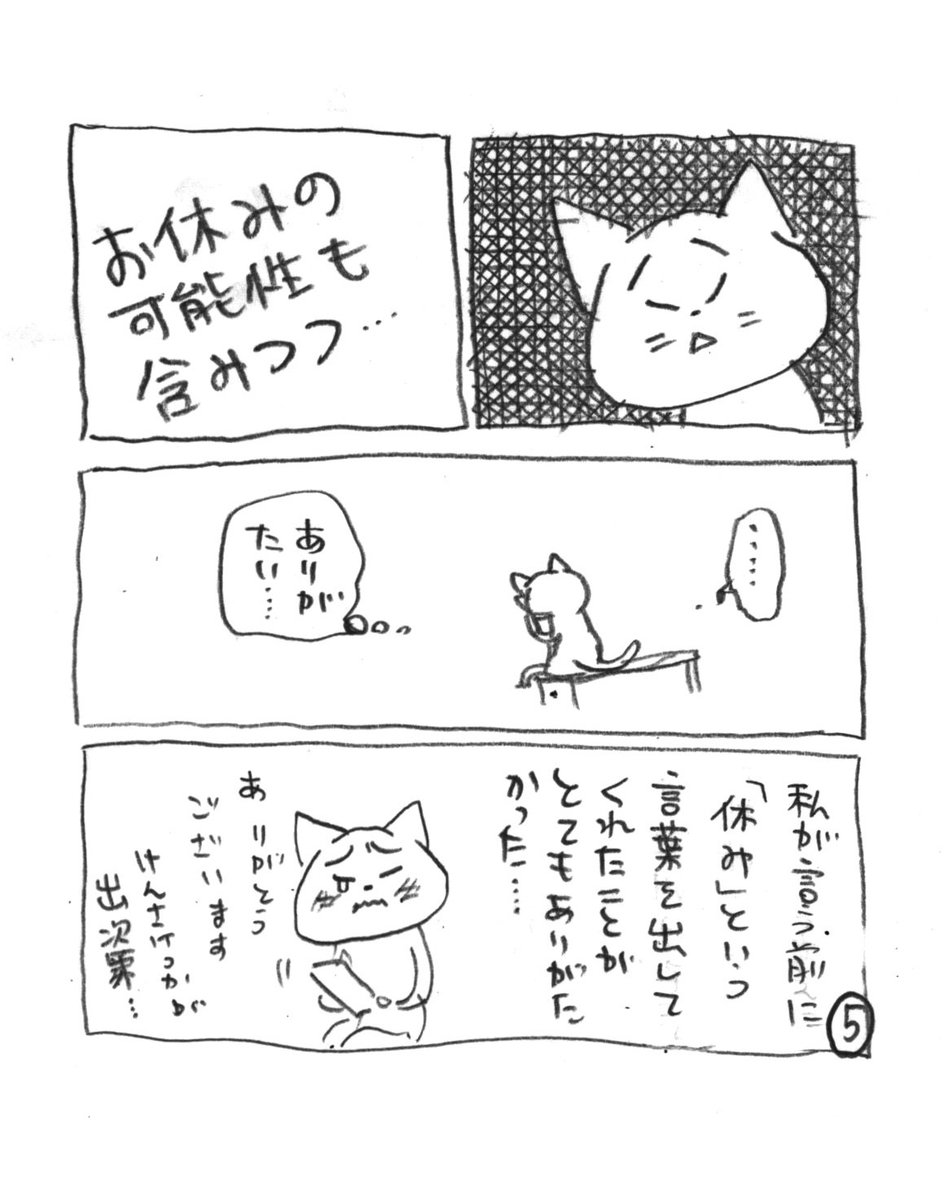 お休みの
可能性も
含みつつ…
……
ありが
たい……
私が言う前に
「休み」という
言葉を出して
くれたことが
とてもありがた
かった……
ありがとう
ございます
けんさけっかが
出次第…
5